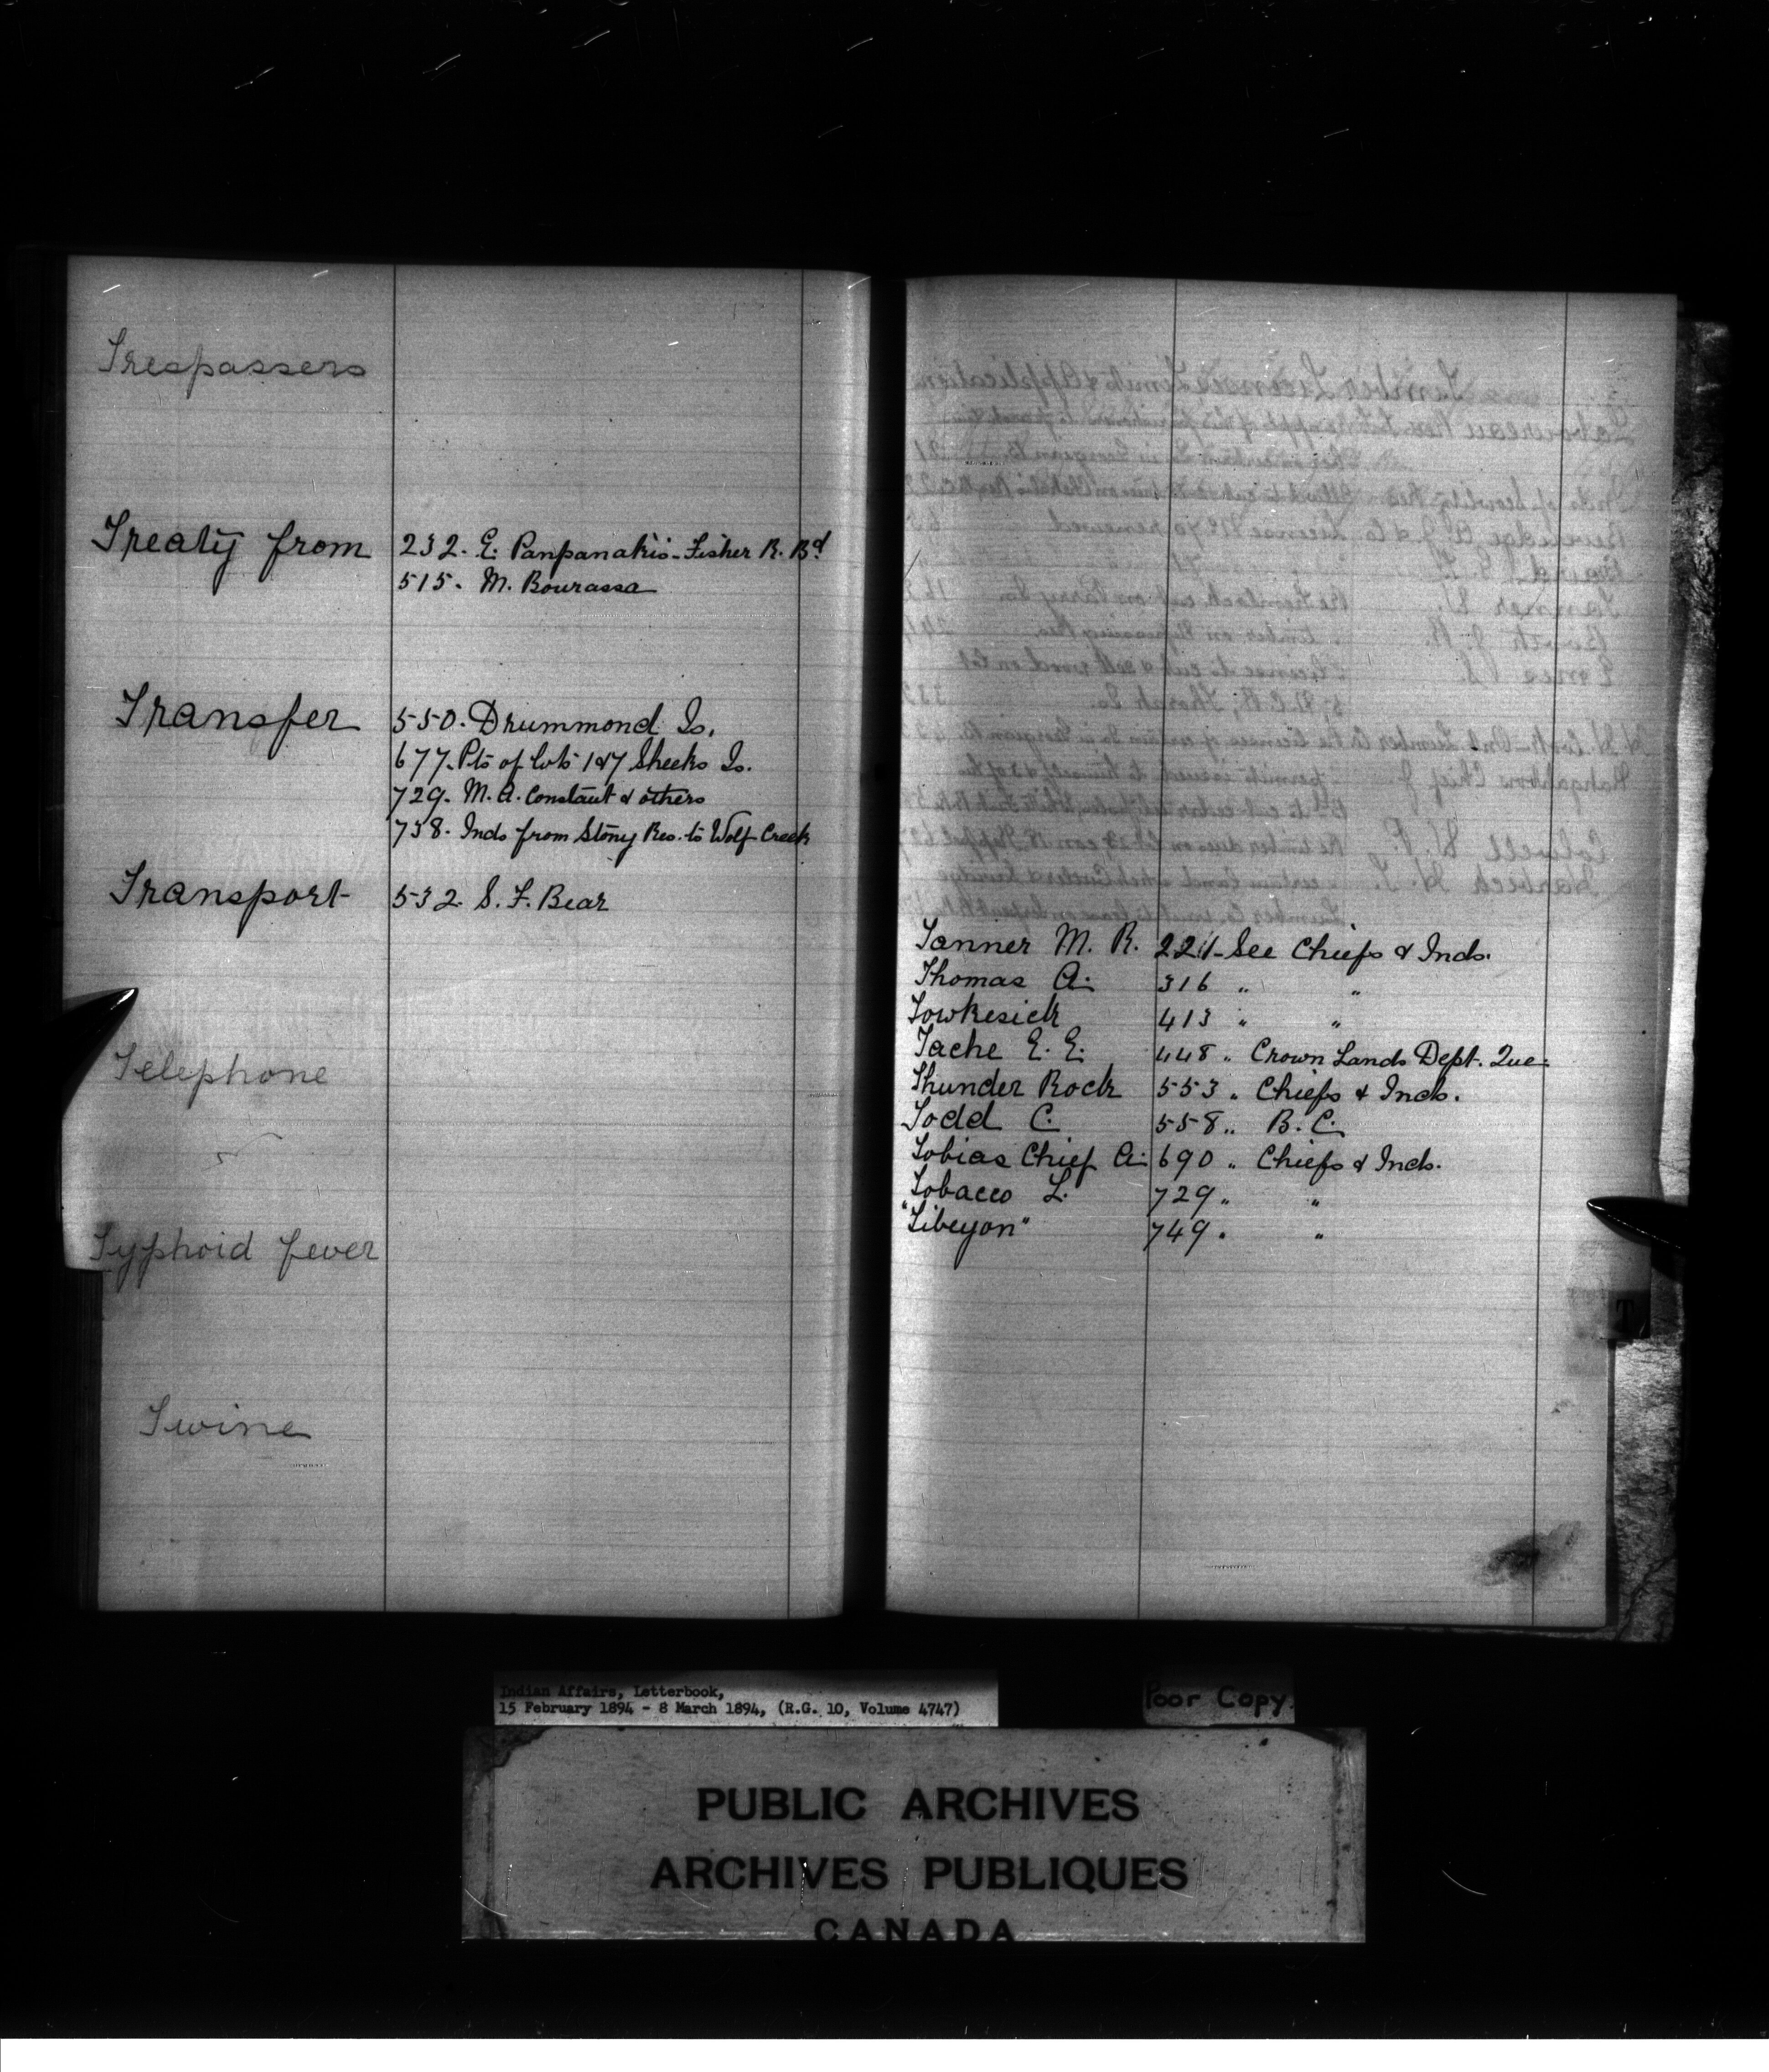 Trespassers
Treaty from 232. E. Panpanakis-Fisher R. Bd
515. M. Bourassa
Transfer 550. Drummond Is.
677. Pts of lots 1 & 7 Sheeks Is.
729. M. A. Constant & others
738. Inds from Stony Res. to Wolf Creek
Transport 532. S. F. Bear
Telephone
Typhoid fever
Twine
Tanner M. R. 221 - See Chiefs & Inds.
Thomas A. 316 " "
Towkesick 413 " "
Tache E. E. 448 " Crown Lands Dept. Que.
Thunder Rock 553 " Chiefs & Inds.
Todd C. 558 " B. C.
Tobias Chief A. 690 " Chiefs & Inds.
Tobacco L. 729 " "
"Tibeyon" 749 " "
T
Indian Affairs, Letterbook,
15 February 1894 - 8 March 1894, (R.G. 10, Volume 4747)
Poor Copy.
PUBLIC ARCHIVES
ARCHIVES PUBLIQUES
CANADA